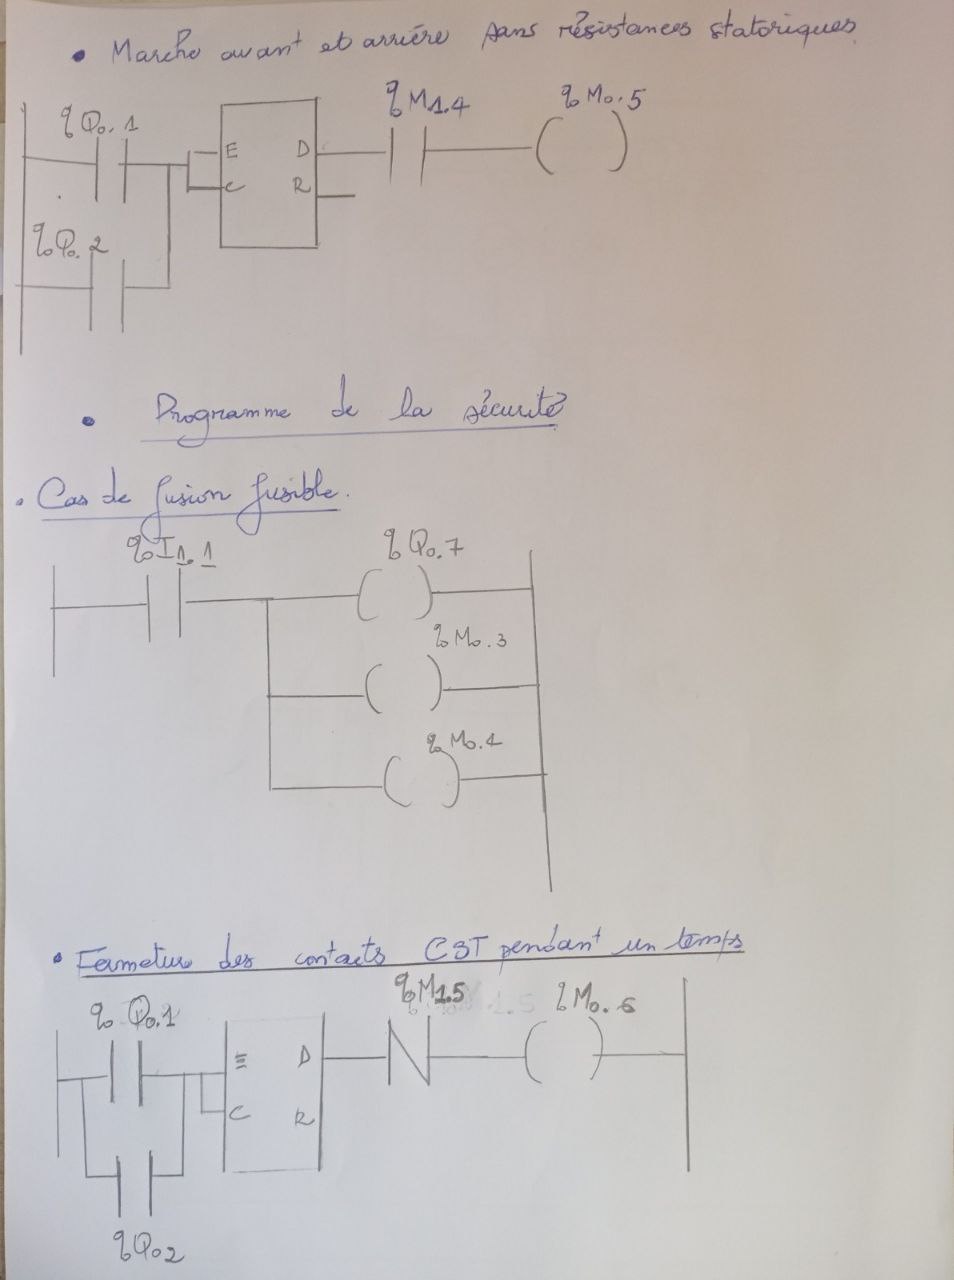 • Marche avant et arrière sans résistances statoriques
%Q0.1
%M1.4
%M0.5
E D
C R
%Q0.2
• Programme de la sécurité
• Cas de fusion fusible.
%I1.1
%Q0.7
%M0.3
%M0.4
• Fermeture des contacts CST pendant un temps
%Q0.1
%M1.5
%M0.6
E D
C R
%Q0.2